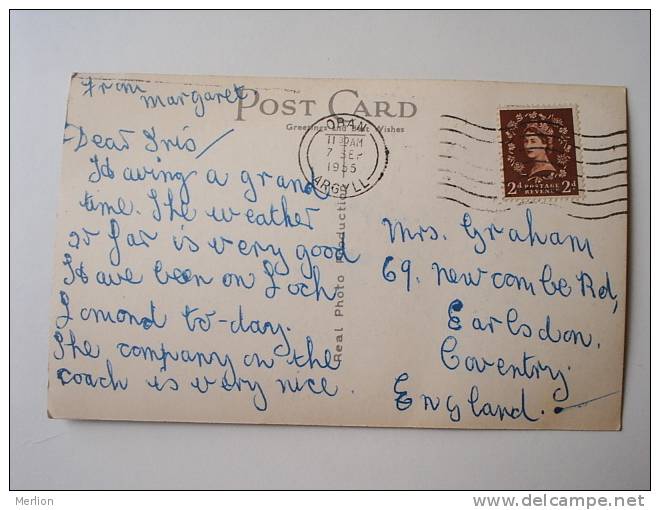 From
Margaret
POST CARD
Greetings and Best Wishes
OBAN
11 30AM
7 SEP
1955
ARGYLL
2d POSTAGE 2d
REVENUE
Dear Iris/
Having a grand
time. The weather
so far is very good
Have been on Loch
Lomond to-day.
The company on the
coach is very nice.
Real Photo Production
Mrs. Graham
69. Newcombe Rd,
Earlsdon.
Coventry.
England.
Merlion
www.delcampe.net